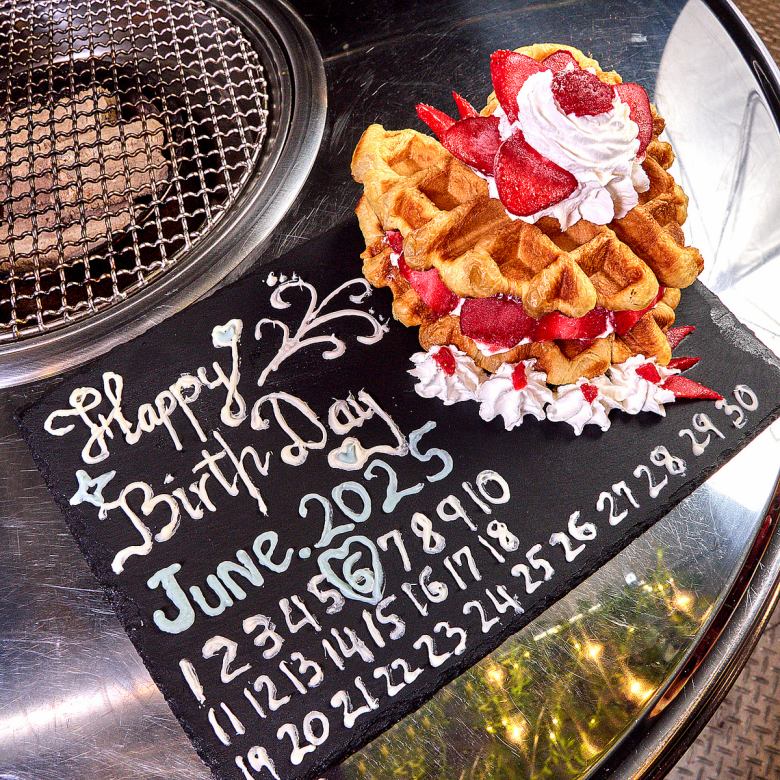 Happy
Birth Day
June. 2025
1 2 3 4 5 6 7 8 9 10
11 12 13 14 15 16 17 18
19 20 21 22 23 24 25 26 27 28 29 30